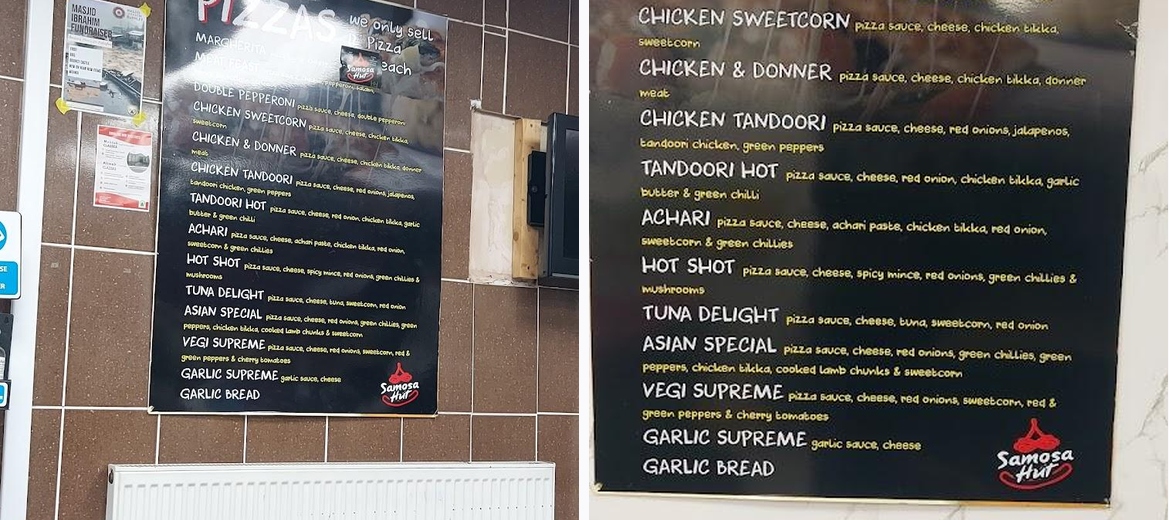 MASJID
IBRAHIM
FUNDRAISER
PIZZAS
we only sell
Pizza
each
MARGHERITA
DOUBLE PEPPERONI pizza sauce, cheese, double pepperoni
CHICKEN SWEETCORN pizza sauce, cheese, chicken tikka,
sweetcorn
CHICKEN & DONNER pizza sauce, cheese, chicken tikka, donner
meat
CHICKEN TANDOORI pizza sauce, cheese, red onions, jalapenos,
tandoori chicken, green peppers
TANDOORI HOT pizza sauce, cheese, red onion, chicken tikka, garlic
butter & green chilli
ACHARI pizza sauce, cheese, achari paste, chicken tikka, red onion,
sweetcorn & green chillies
HOT SHOT pizza sauce, cheese, spicy mince, red onions, green chillies &
mushrooms
TUNA DELIGHT pizza sauce, cheese, tuna, sweetcorn, red onion
ASIAN SPECIAL pizza sauce, cheese, red onions, green chillies, green
peppers, chicken tikka, cooked lamb chunks & sweetcorn
VEGI SUPREME pizza sauce, cheese, red onions, sweetcorn, red &
green peppers & cherry tomatoes
GARLIC SUPREME garlic sauce, cheese
GARLIC BREAD
Samosa
Hut
CHICKEN SWEETCORN pizza sauce, cheese, chicken tikka,
sweetcorn
CHICKEN & DONNER pizza sauce, cheese, chicken tikka, donner
meat
CHICKEN TANDOORI pizza sauce, cheese, red onions, jalapenos,
tandoori chicken, green peppers
TANDOORI HOT pizza sauce, cheese, red onion, chicken tikka, garlic
butter & green chilli
ACHARI pizza sauce, cheese, achari paste, chicken tikka, red onion,
sweetcorn & green chillies
HOT SHOT pizza sauce, cheese, spicy mince, red onions, green chillies &
mushrooms
TUNA DELIGHT pizza sauce, cheese, tuna, sweetcorn, red onion
ASIAN SPECIAL pizza sauce, cheese, red onions, green chillies, green
peppers, chicken tikka, cooked lamb chunks & sweetcorn
VEGI SUPREME pizza sauce, cheese, red onions, sweetcorn, red &
green peppers & cherry tomatoes
GARLIC SUPREME garlic sauce, cheese
GARLIC BREAD
Samosa
Hut